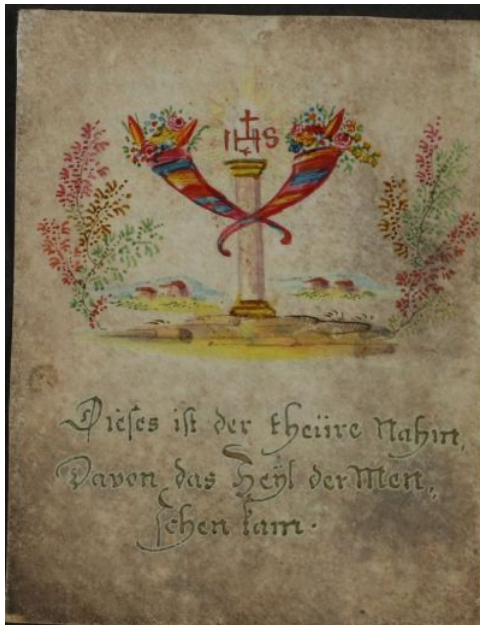 IHS
Dieses ist der theüre Nahm,
Davon das Heÿl der Men„
schen kam.